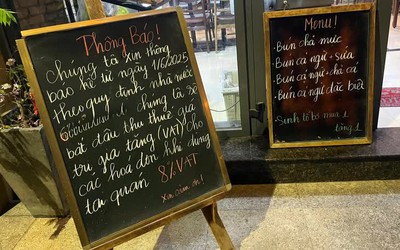 Thông Báo!
Chúng tôi xin thông
báo kể từ ngày 1/6/2025
theo quy định nhà nước
chúng tôi sẽ
bắt đầu thu thuế giá
trị gia tăng (VAT) cho
các hoá đơn khi dùng
tại quán 8% VAT
Xin cảm ơn!
Menu!
- Bún chả mực
- Bún cá ngừ + sứa
- Bún cá ngừ + chả cá
- Bún cá ngừ đặc biệt
Sinh tố bơ mua 1
tặng 1